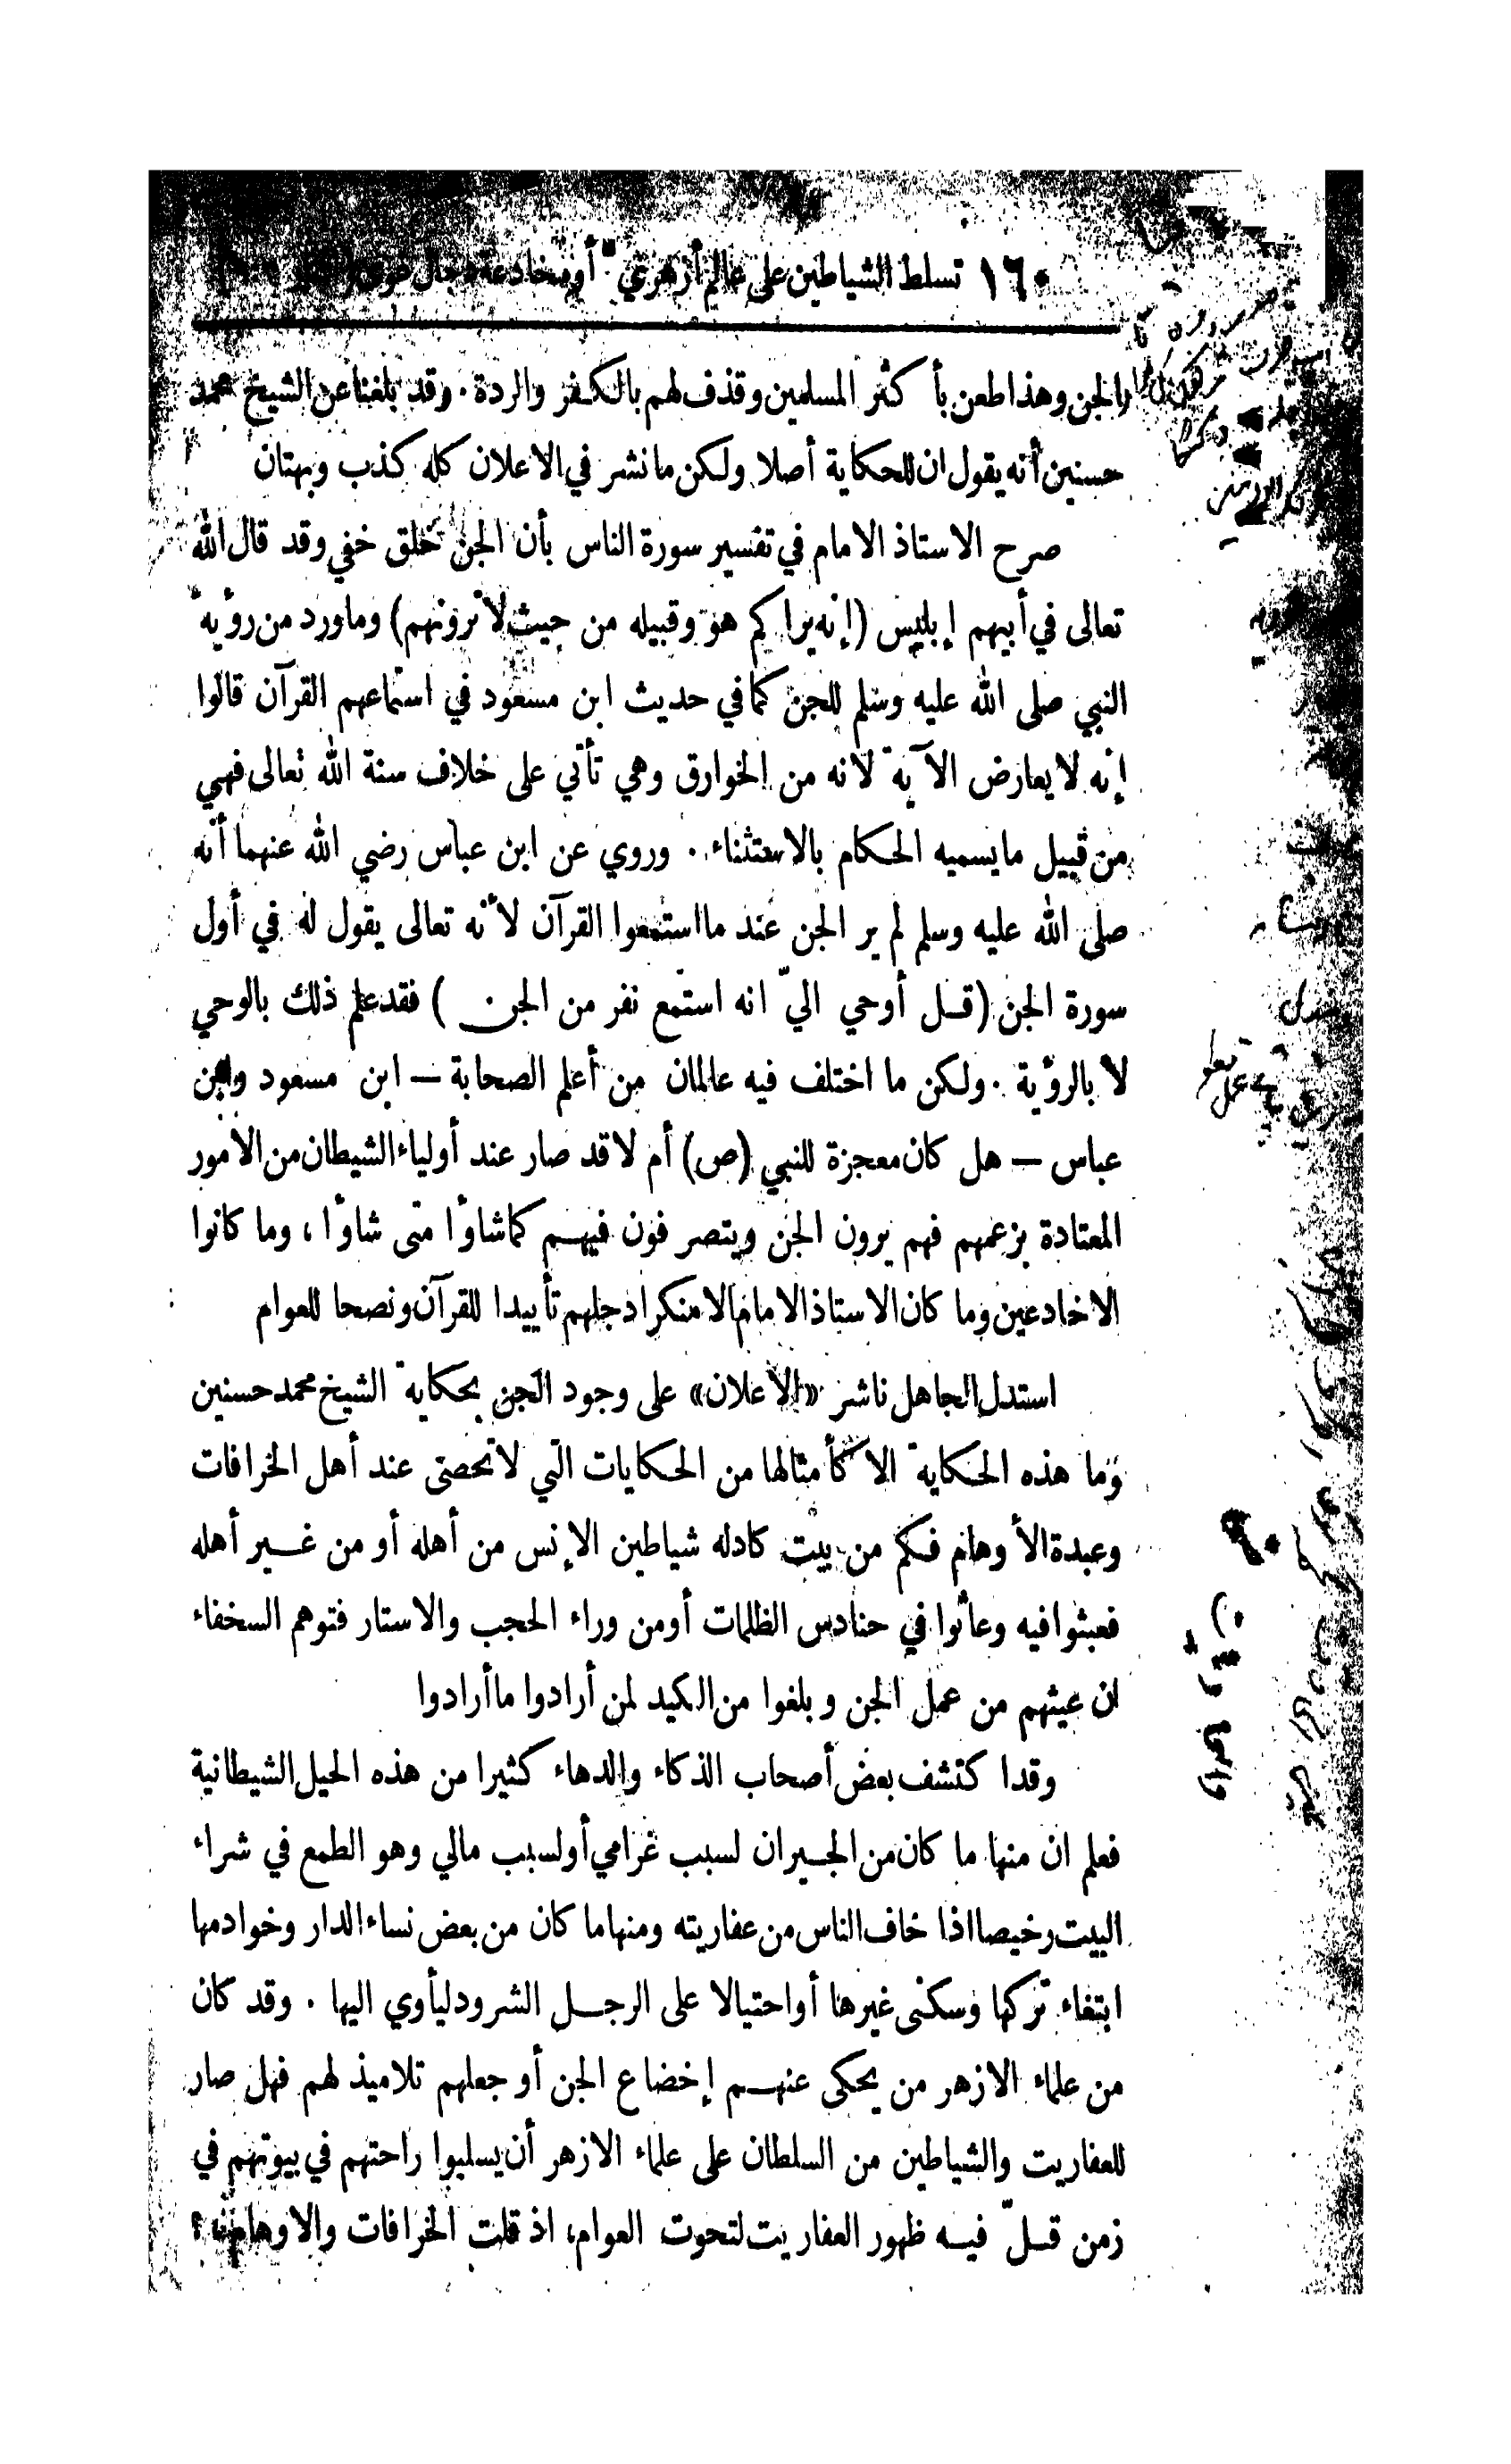 ١٦٠ تسلط الشياطين على عالم أزهري. أو مخادعة دجال
بالجن وهذا طعن بأكثر المسلمين وقذف لهم بالكفر والردة. وقد بلغنا عن الشيخ محمد
حسنين أنه يقول ان للحكاية أصلا ولكن ما نشر في الاعلان كله كذب وبهتان
صرح الاستاذ الامام في تفسير سورة الناس بأن الجن خلق خفي وقد قال الله
تعالى في أبيهم إبليس (إنه يراكم هو وقبيله من حيث لا ترونهم) وما ورد من رؤية
النبي صلى الله عليه وسلم للجن كما في حديث ابن مسعود في استماعهم القرآن قالوا
إنه لا يعارض الآية لانه من الخوارق وهي تأتي على خلاف سنة الله تعالى فهي
من قبيل ما يسميه الحكام بالاستثناء. وروي عن ابن عباس رضي الله عنهما أنه
صلى الله عليه وسلم لم ير الجن عند ما استمعوا القرآن لأنه تعالى يقول له في أول
سورة الجن (قل أوحي اليّ انه استمع نفر من الجن) فقد علم ذلك بالوحي
لا بالرؤية. ولكن ما اختلف فيه عالمان من أعلم الصحابة — ابن مسعود وابن
عباس — هل كان معجزة للنبي (ص) أم لا قد صار عند أولياء الشيطان من الامور
المعتادة بزعمهم فهم يرون الجن ويتصرفون فيهم كما شاؤا متى شاؤا، وما كانوا
الا خادعين وما كان الاستاذ الامام الا منكرا دجلهم تأييدا للقرآن ونصحا للعوام
استدل الجاهل ناشر «الاعلان» على وجود الجن بحكاية الشيخ محمد حسنين
وما هذه الحكاية الا كأمثالها من الحكايات التي لا تحصى عند أهل الخرافات
وعبدة الأوهام فكم من بيت كادله شياطين الإنس من أهله أو من غير أهله
فعبثوا فيه وعاثوا في حنادس الظلمات أو من وراء الحجب والاستار فتوهم السخفاء
ان عيثهم من عمل الجن وبلغوا من الكيد لمن أرادوا ما أرادوا
وقد اكتشف بعض أصحاب الذكاء والدهاء كثيرا من هذه الحيل الشيطانية
فعلم ان منها ما كان من الجيران لسبب غرامي أو لسبب مالي وهو الطمع في شراء
البيت رخيصا اذا خاف الناس من عفاريته ومنها ما كان من بعض نساء الدار وخوادمها
ابتغاء تركها وسكنى غيرها أو احتيالا على الرجل الشرود ليأوي اليها. وقد كان
من علماء الازهر من يحكى عنهم إخضاع الجن أو جعلهم تلاميذ لهم فهل صار
للعفاريت والشياطين من السلطان على علماء الازهر أن يسلبوا راحتهم في بيوتهم في
زمن قلّ فيه ظهور العفاريت لتحوت العوام، اذ قلت الخرافات والاوهام؟